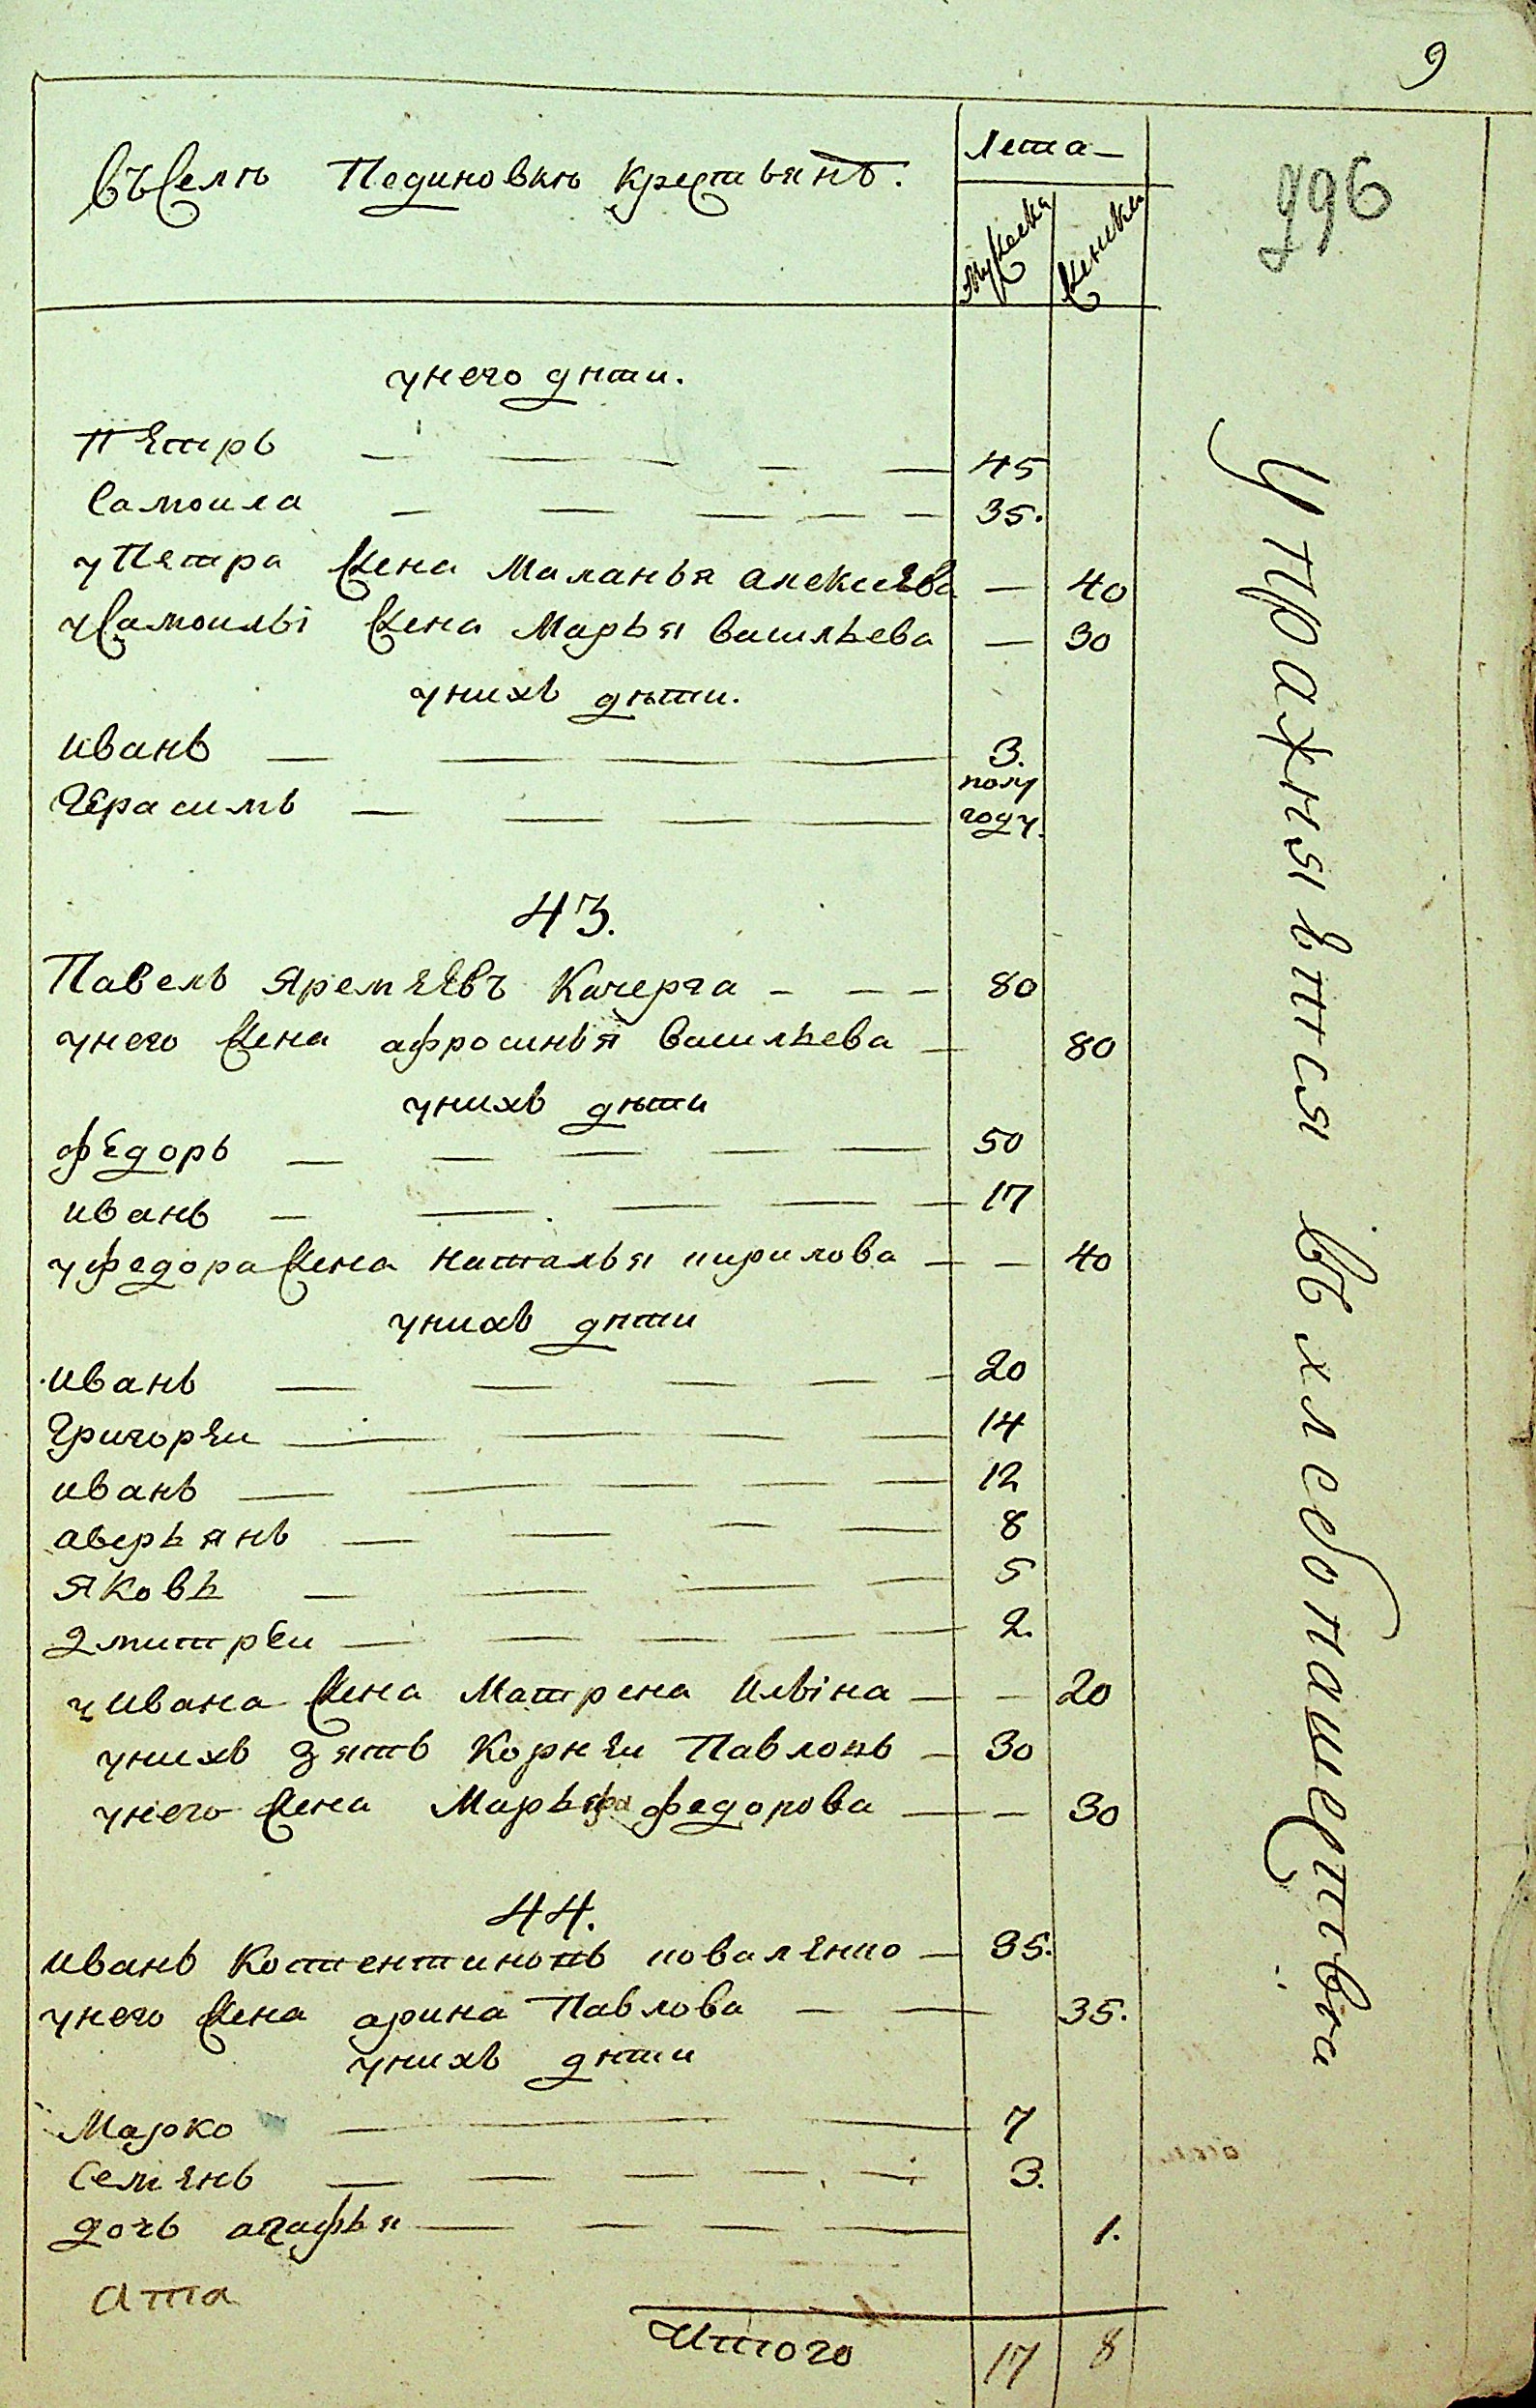 9
въ Селѣ Пединовкѣ крестьянъ.
Лета
Мужеска
женска
796
унего дѣти.
Пётръ 45
Самоила 35.
у Петра жена Маланья алексеева — 40
у Самоилы жена Марья васильева — 30
унихъ дѣти.
иванъ 3.
Герасимъ полу году.
43.
Павелъ Яремѣевъ Качерга 80
унего жена афросинья васильева 80
унихъ дѣти
фёдоръ 50
иванъ 17
уфедора жена наталья кирилова — 40
унихъ дѣти
иванъ 20
Григорѣи 14
иванъ 12
аверьянъ 8
Яковъ 5
дмитрѣи 2.
у ивана жена Матрена ильина — 20
унихъ зять Корнѣи Павловъ — 30
унего жена Марья федорова — 30
44.
иванъ Костентиновъ коваленко — 35.
унего жена арина Павлова — 35.
унихъ дѣти
Марко 7
Семёнъ 3.
дочь агафья 1.
Ата
Итого 17 8
Упражнявтся въ хлебопашества